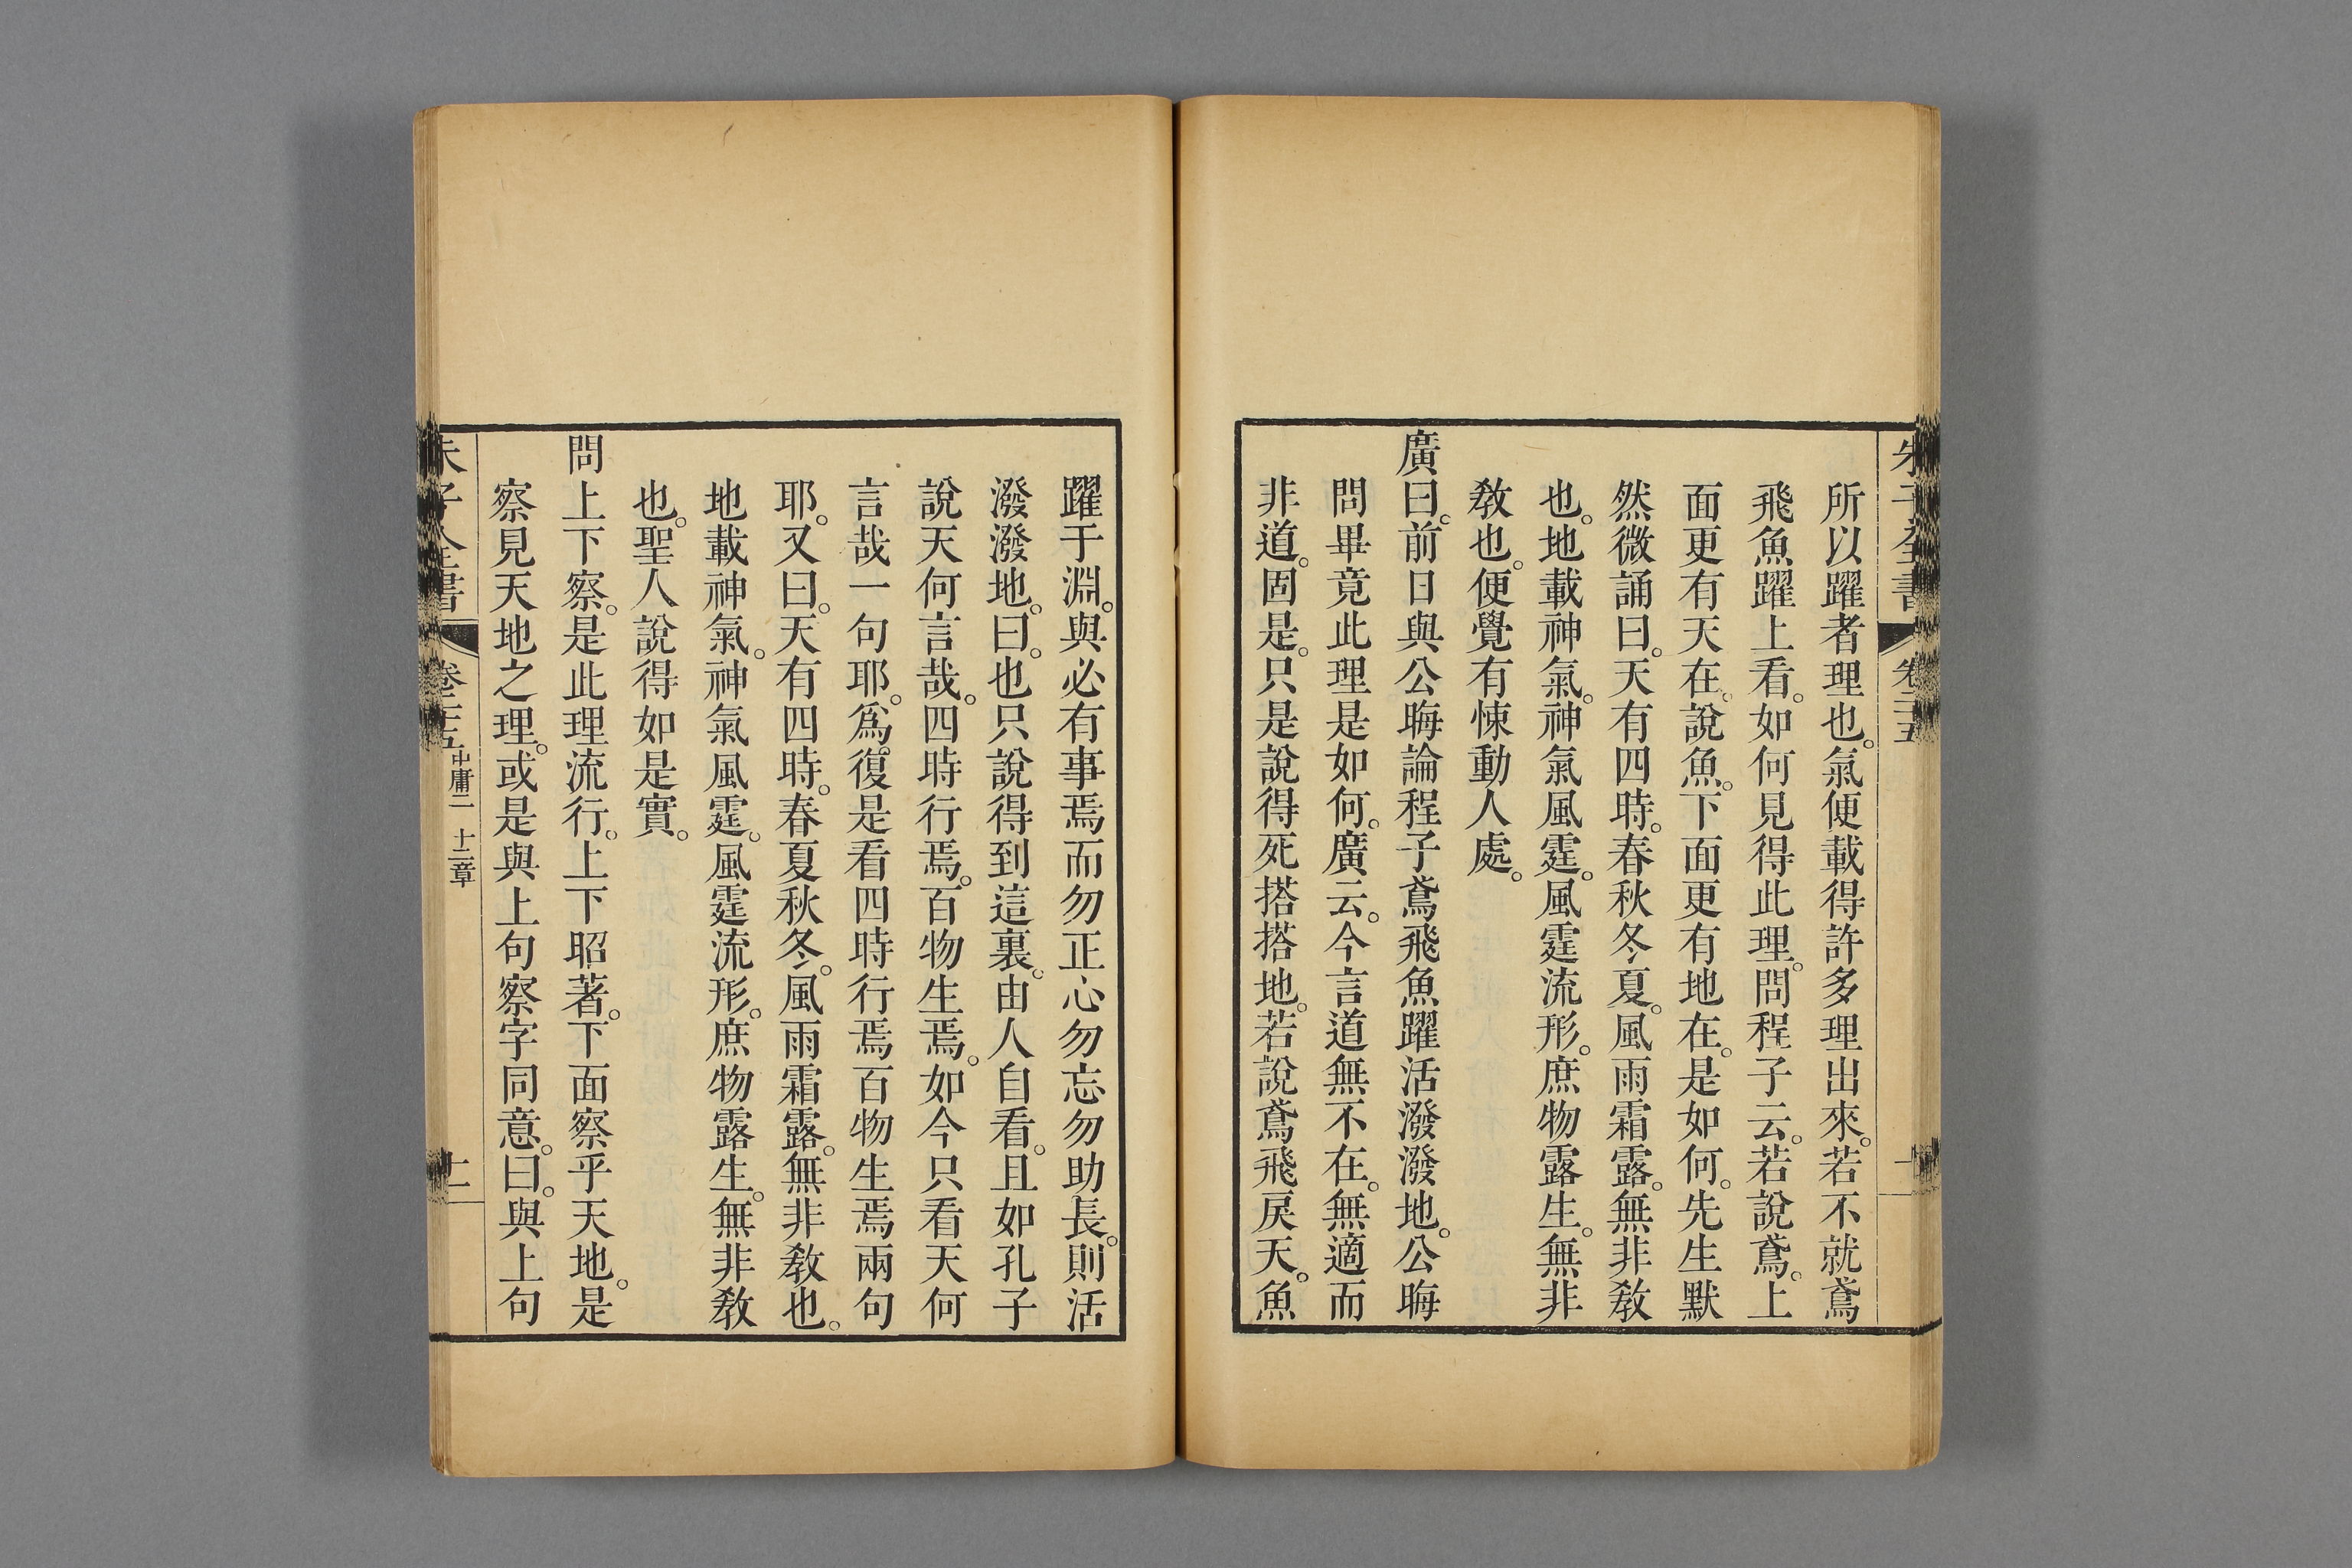 朱子全書 卷二十五
所以躍者理也。氣便載得許多理出來。若不就鳶
飛魚躍上看。如何見得此理。問程子云。若說鳶。上
面更有天在。說魚。下面更有地在。是如何。先生默
然微誦曰。天有四時。春秋冬夏。風雨霜露。無非教
也。地載神氣。神氣風霆。風霆流形。庶物露生。無非
教也。便覺有悚動人處。
廣曰。前日與公晦論程子鳶飛魚躍活潑潑地。公晦
問畢竟此理是如何。廣云。今言道無不在。無適而
非道。固是。只是說得死搭搭地。若說鳶飛戾天。魚
躍于淵。與必有事焉而勿正心勿忘勿助長。則活
潑潑地。曰。也只說得到這裏。由人自看。且如孔子
說天何言哉。四時行焉。百物生焉。如今只看天何
言哉一句耶。爲復是看四時行焉百物生焉兩句
耶。又曰。天有四時。春夏秋冬。風雨霜露。無非教也。
地載神氣。神氣風霆。風霆流形。庶物露生。無非教
也。聖人說得如是實。
問上下察。是此理流行。上下昭著。下面察乎天地。是
察見天地之理。或是與上句察字同意。曰。與上句
朱子全書 卷二十五 中庸二 十二章